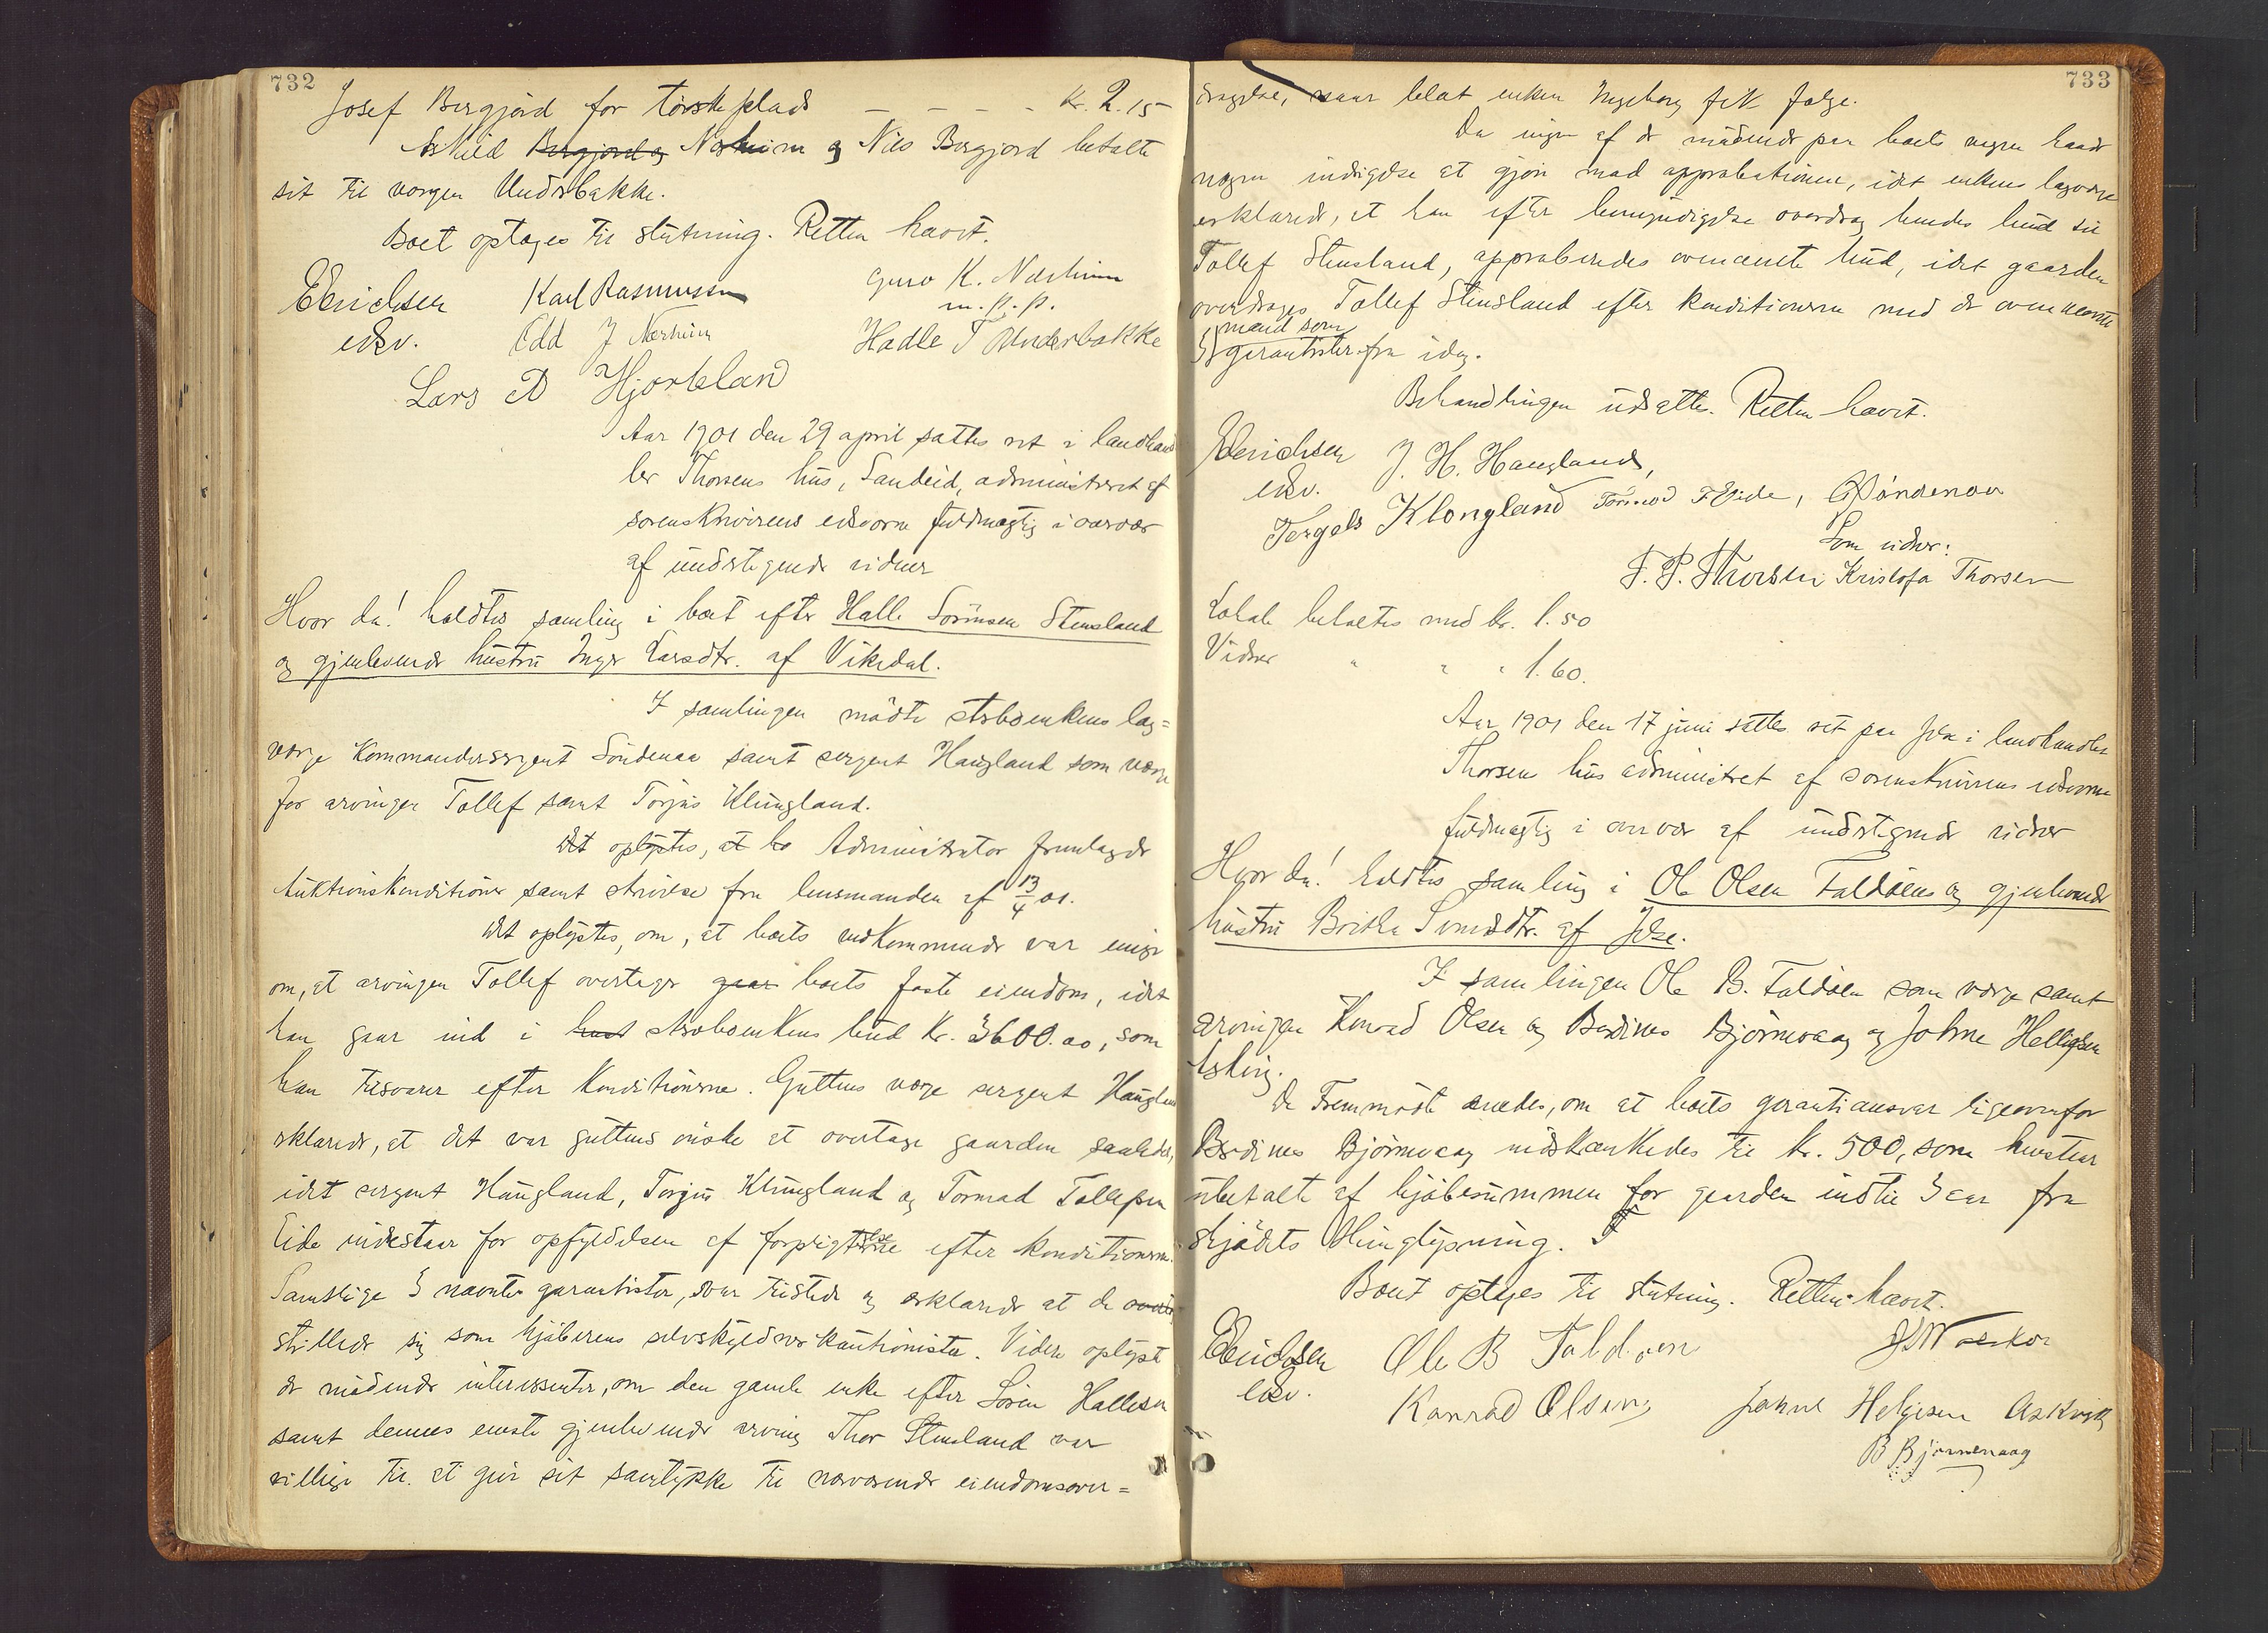 732
Josef Bergjord for törskeplads — — — - Kr. 2.15
Eskild Bergjord og Nærheim og Nils Bergjord betalte
sit til vergen Underbakke.
Boet optages til slutning. Retten hævet.
EErichsen Karl Rasmussen Guro K. Nærheim
m. p. p.
edsv. Odd J Nærheim Hadle T Underbakke
Lars A Hjorteland
Aar 1901 den 29 april sattes ret i landhand
ler Thorsens hus, Sandeid, administreret af
sorenskriverens edsvorne fuldmægtig i overvær
af undertegnede vidner
Hvor da! holdtes samling i boet efter Halle Sörensen Stensland
og gjenlevende hustru Inger Larsdtr. af Vikedal.
I samlingen mödte stervboenkens lag=
verge kommandersergent Söndenaa samt sergent Haugland som verge
for arvingen Tollef samt Torjus Klungland.
Det oplystes, at bo Administrator fremlagde
Auktionskonditioner samt skrivelse fra lensmanden af 13/4 01.
Det oplystes, om, at boets vedkommende var enige
om, at arvingen Tollef overtager gaar boets faste eiendom, idet
han gaar ind i stervboenkens bud Kr. 3600.00, som
han tilsvarer efter konditionerne. Guttens verge sergent Haugland
erklærede, at det var guttens önske at overtage gaarden saaledes,
idet sergent Haugland, Torjus Klungland og Tormod Tollefsen
Eide indestaar for opfyldelsen af forpligtelse efter konditionerne.
Samtlige 3 nævnte garantister, var tilstede og erklærede at de
stillede sig som kjöberens selvskyldnerkautionister. Videre oplyst
de mödende interessenter, om den gamle enke efter Sören Hallesen
samt dennes eneste gjenlevende arving Thor Stensland var
villige til at give sit samtykke til nærværende eiendomsover=
733
dragelse, naar blot enken Ingeborg fik folge.
Da ingen af de mödende paa boets vegne havde
nogen indsigelse at gjöre mod approbationen, idet enkens lagverge
erklærede, at han efter bemyndigelse overdrog hendes bud til
Tollef Stensland, approberedes ovennævnte bud, idet gaarden
overdrages Tollef Stensland efter konditionerne med de ovennævnte
mænd som
3 garantister fra idag.
Behandlingen udsattes. Retten hævet.
EErichsen J. H. Haugland,
edsv. Torgels Klongland Tormod T Eide, GSöndenaa
Som vidner:
T. P. Thorsen Kristofa Thorsen
Lokale betaltes med kr. 1.50
Vidner " " " 1.60.
Aar 1901 den 17 juni sattes ret paa Jelse i landhandler
Thorsens hus administret af sorenskriverens edsvorne
fuldmægtig i overvær af undertegnede vidner
Hvor da! holdtes samling i Ole Olsen Foldöens og gjenlevende
hustru Britha Svendsdtr. af Jelse.
I samlingen Ole B. Foldöen som verge samt
arvingen Konrad Olsen og Berdines Björnevaag og Johne Helligsen
Askvig.
De Fremmödte enedes, om at boets garantiansvar ligeoverfor
Berdines Björnevaag indskrænkedes til kr. 500, som
ubetalt af kjöbesummen for gaarden indtil 3 aar fra
skjödets thinglysning.
Boet optages til slutning. Retten hævet.
EErichsen Ole B Foldöen
edsv. Konrad Olsen Johne Helgesen Askvik
B Björnevaag